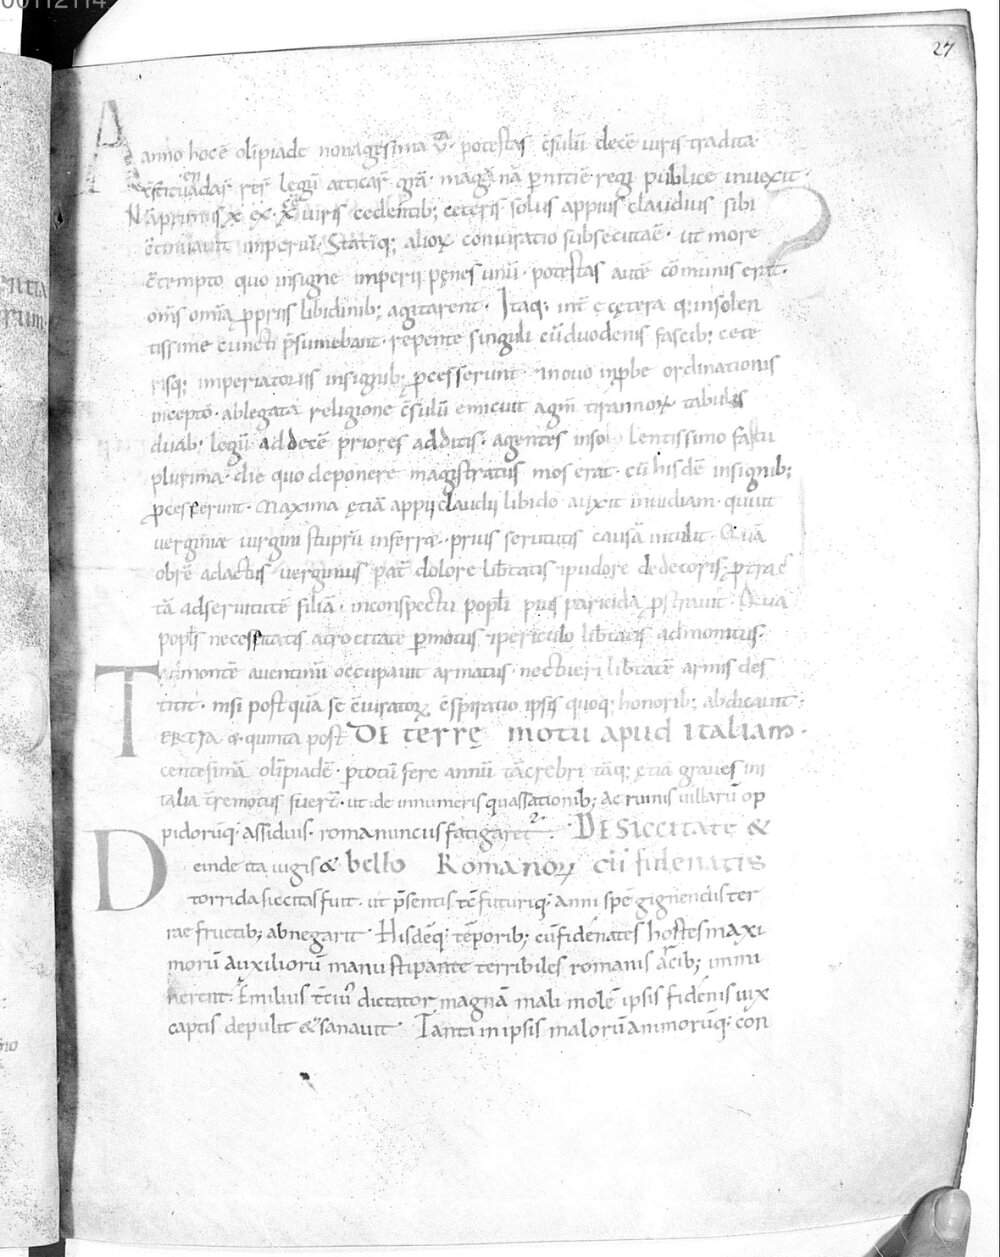 00112114
27
A
anno hoc ē olīpiade nonagesima v̄ potestas c̄sulū decē uiris tradita
c̄stituendar̄ rēr legū atticar̄ grā magnā ꝑnitiē rei publice inuexit
Nā primus x ex x uiris cedentib; ceteris solus appius claudius sibi
c̄tinuauit imperiū. Statiq; alioꝝ coniuratio subsecuta ē ut more
c̄tempto quo insigne imperii penes unū potestas autē cōmunis erat.
om̄s om̄ia ꝓpriis libidinib; agitarent. Itaq; int̄ cętera q; insolen
tissime cuncti p̄sumebant repente singuli cū duodenis fascib; cete
risq; imperiatoriis insignib; ꝓcesserunt. nouo inꝓbe ordinationis
incepto. ablegata religione c̄sulū emicuit agm̄ tirannoꝝ tabulis
duab; legū ad decē priores additis. agentes inso lentissimo fastu
plurima. die quo deponere magistratus mos erat. cū hisdē insignib;
ꝓcesserunt. Maxima ętiā appii claudii libido auxit inuidiam. qui ut
uerginiæ uirgini stuprū inferræ. prius seruitutis causā intulit. Quā
obrē adactus uerginius pat̄ dolore lib̄tatis ⁊ pudore dedecoris. ꝓtrac
tā ad seruitutē filiā. in conspectu popl̄i pius paricida ꝓstrauit. Qua
popl̄s necessitatis atrocitate ꝑmotus ⁊ periculo lib̄tatis admonitus.
montē auentinū occupauit armatus. nec tueri lib̄tatē armis des
titit. nisi postquā se c̄iuratoꝝ c̄spiratio ipsis quoq; honorib; abdicauit.
TERTIA & quinta post DE terrę motu apud italiam.
centesimā olīpiadē. ꝑ totū fere annū tā crebri tāq; ętiā graues in
italia t̄remotus fuer̄t. ut de innumeris quassationib; ac ruinis uillarū op
pidorūq; assiduis. roma nunciis fatigaret. DE Siccitate &
Deinde ita iugis & bello Romanoꝝ cū fidenatis
torrida siccitas fuit. ut p̄sentis tc̄ futuriq; anni spē gignendis ter
rae fructib; abnegarit. Hisdēq; tēporib; cū fidenates hostes maxi
morū auxiliorū manu stipante terribiles romanis arcib; immi
nerent. Ęmilius t̄cius dictator magnā mali molē ipsis fidenis uix
captis depulit & sanauit. Tanta in ipsis malorū animorūq; con